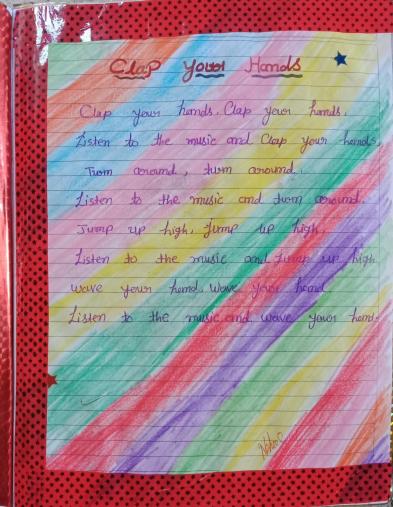 Clap Your Hands
Clap your hands. Clap your hands.
Listen to the music and Clap your hands.
Turn around, turn around.
Listen to the music and turn around.
Jump up high, Jump up high.
Listen to the music and Jump up high
wave your hand. Wave your hand
Listen to the music and wave your hand.